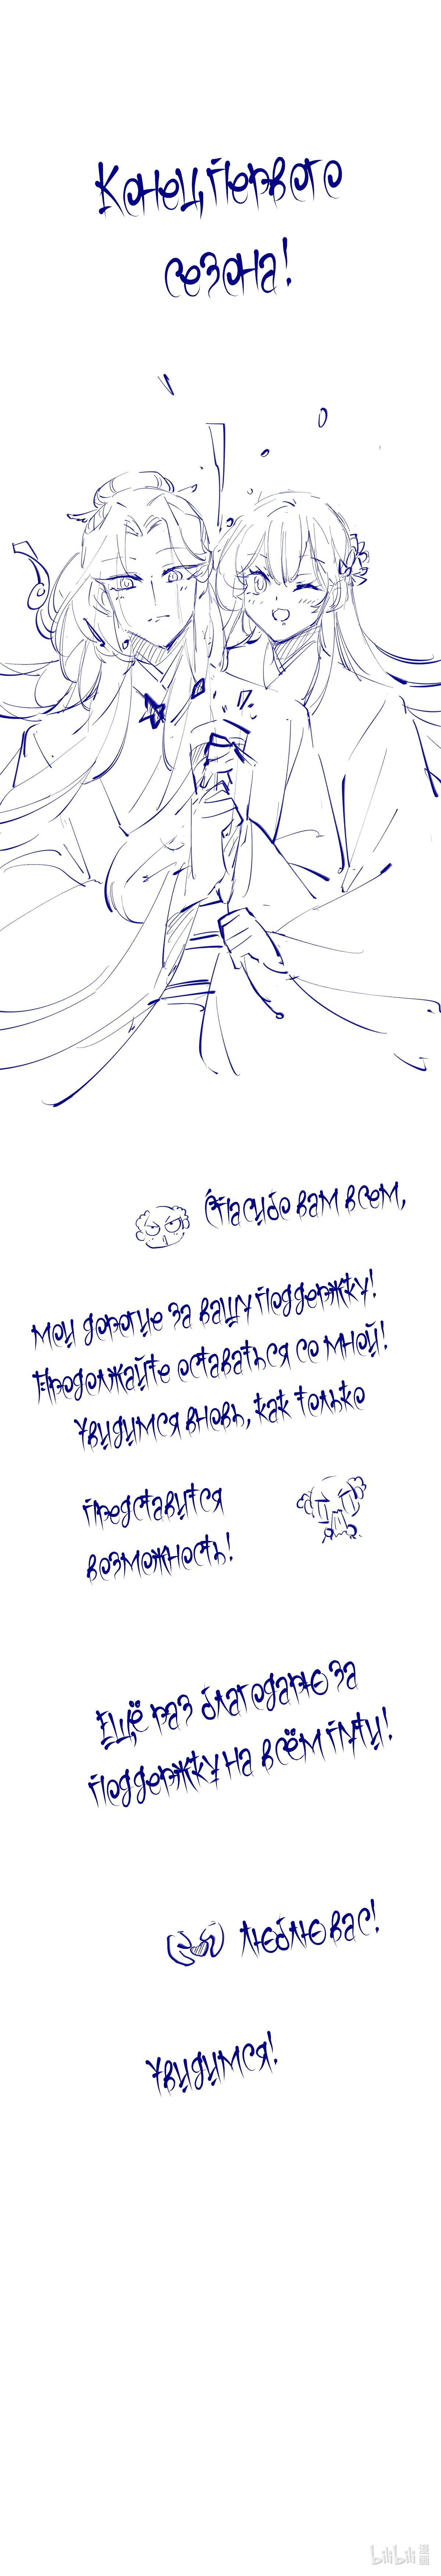 Конец первого
сезона!
Спасибо вам всем,
мои дорогие за вашу поддержку!
Продолжайте оставаться со мной!
Увидимся вновь, как только
представится
возможность!
Ещё раз благодарю за
поддержку на всём пути!
Люблю вас!
Увидимся!
bilibili 漫画